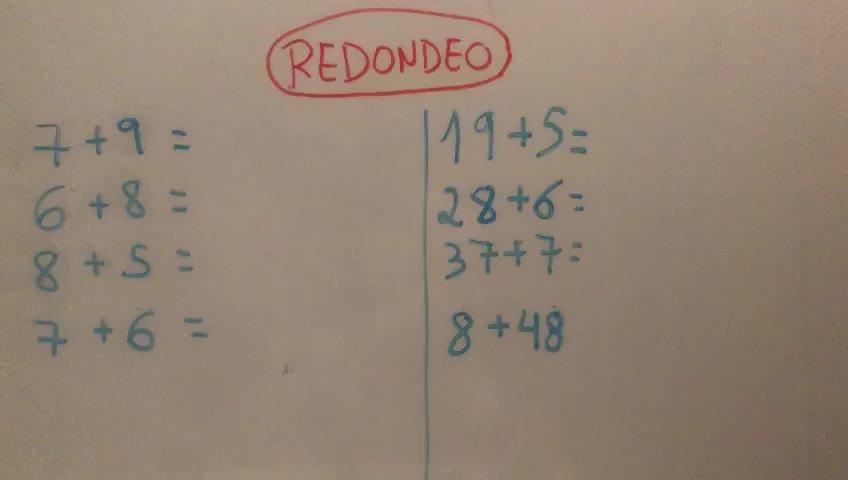 REDONDEO
7 + 9 =
6 + 8 =
8 + 5 =
7 + 6 =
19 + 5 =
28 + 6 =
37 + 7 =
8 + 48